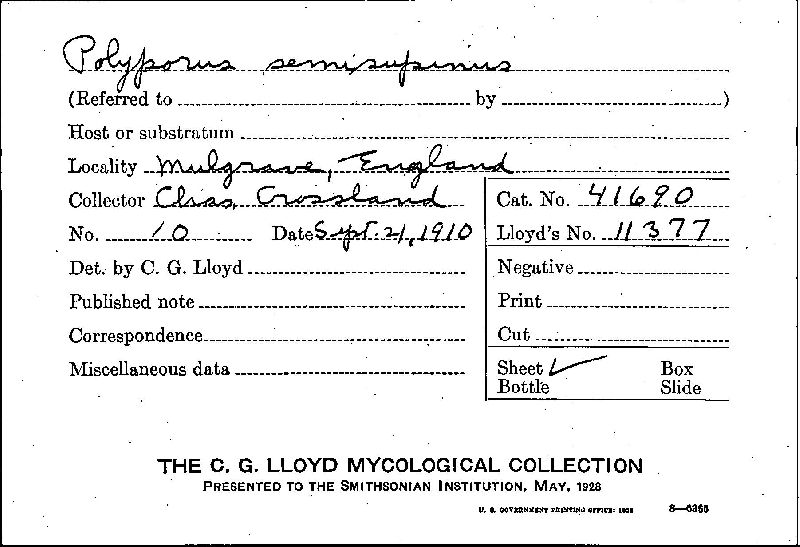 Polyporus semisupinus
(Referred to by )
Host or substratum
Locality Mulgrave, England
Collector Chas. Crossland Cat. No. 41690
No. 10 Date Sept. 21, 1910 Lloyd's No. 11377
Det. by C. G. Lloyd Negative
Published note Print
Correspondence Cut
Miscellaneous data Sheet ✓ Box
Bottle Slide
THE C. G. LLOYD MYCOLOGICAL COLLECTION
PRESENTED TO THE SMITHSONIAN INSTITUTION, MAY, 1928
U. S. GOVERNMENT PRINTING OFFICE: 8—6355